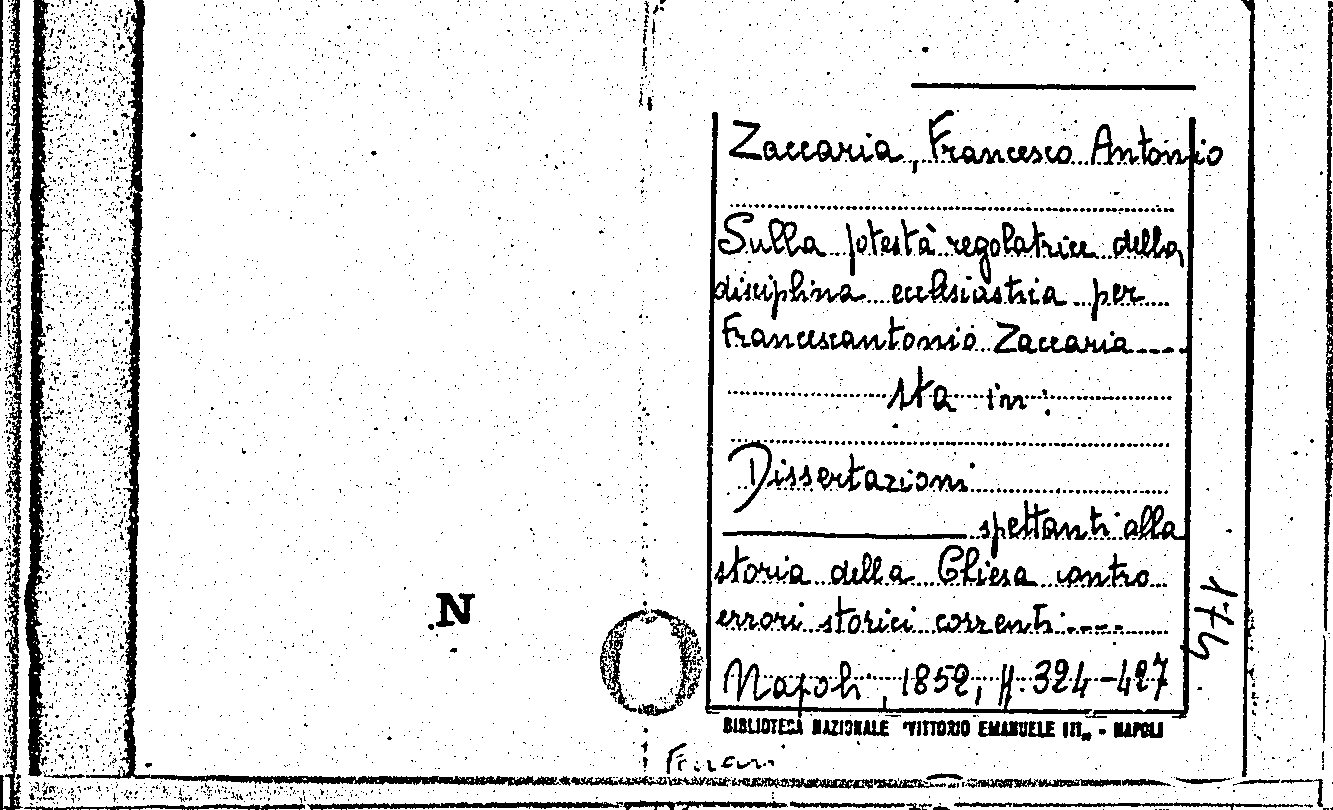 Zaccaria, Francesco Antonio
Sulla potestà regolatrice della
disciplina ecclesiastica per
Francescantonio Zaccaria....
sta in:
Dissertazioni
spettanti alla
storia della Chiesa contro
errori storici correnti....
Napoli, 1852, pp. 324-427
BIBLIOTECA NAZIONALE "VITTORIO EMANUELE III„ - NAPOLI
N
174